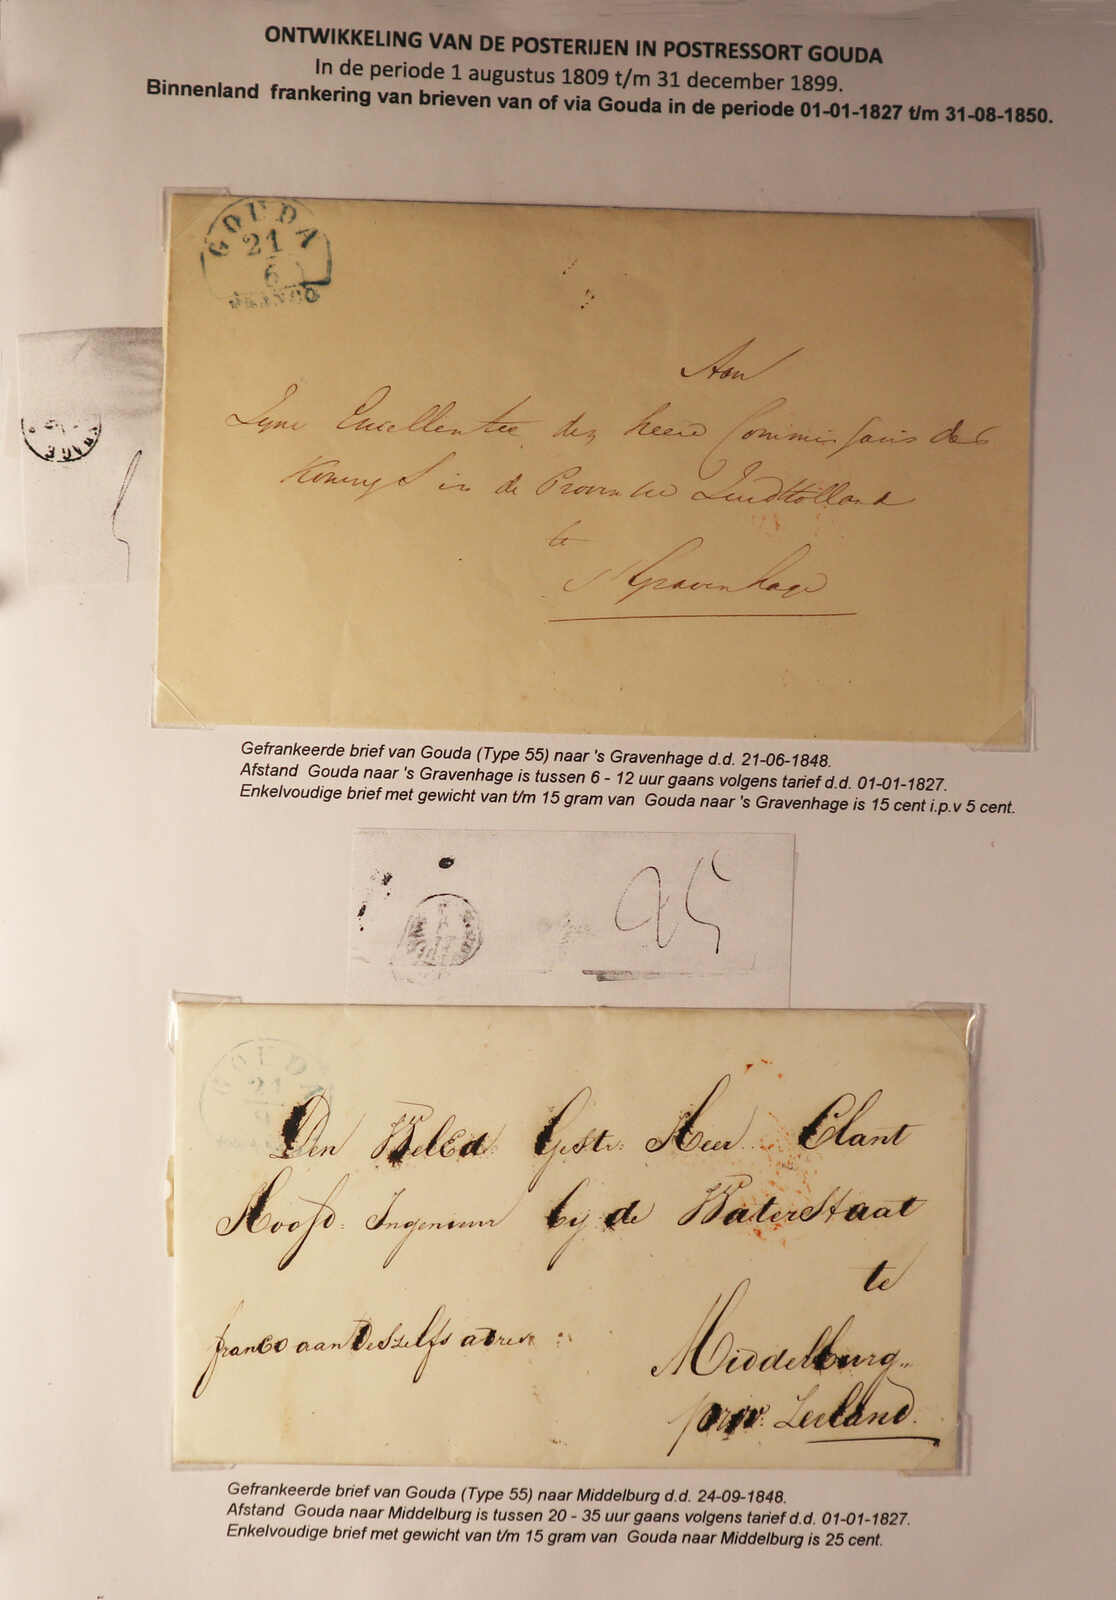 ONTWIKKELING VAN DE POSTERIJEN IN POSTRESSORT GOUDA
In de periode 1 augustus 1809 t/m 31 december 1899.
Binnenland frankering van brieven van of via Gouda in de periode 01-01-1827 t/m 31-08-1850.
GOUDA
21
6
FRANCO
Aan
Zyne Excellentee den heere Commissaris des
Konings in de Provincie Zuidholland
te
s'Gravenhage
Gefrankeerde brief van Gouda (Type 55) naar 's Gravenhage d.d. 21-06-1848.
Afstand Gouda naar 's Gravenhage is tussen 6 - 12 uur gaans volgens tarief d.d. 01-01-1827.
Enkelvoudige brief met gewicht van t/m 15 gram van Gouda naar 's Gravenhage is 15 cent i.p.v 5 cent.
25
GOUDA
24
9
Den WelEd: Gestr: Heer Clant
Hoofd: Ingenieur bij de WaterStaat
te
franco aan Deszelfs adres
Middelburg
prov: Zeeland.
Gefrankeerde brief van Gouda (Type 55) naar Middelburg d.d. 24-09-1848.
Afstand Gouda naar Middelburg is tussen 20 - 35 uur gaans volgens tarief d.d. 01-01-1827.
Enkelvoudige brief met gewicht van t/m 15 gram van Gouda naar Middelburg is 25 cent.